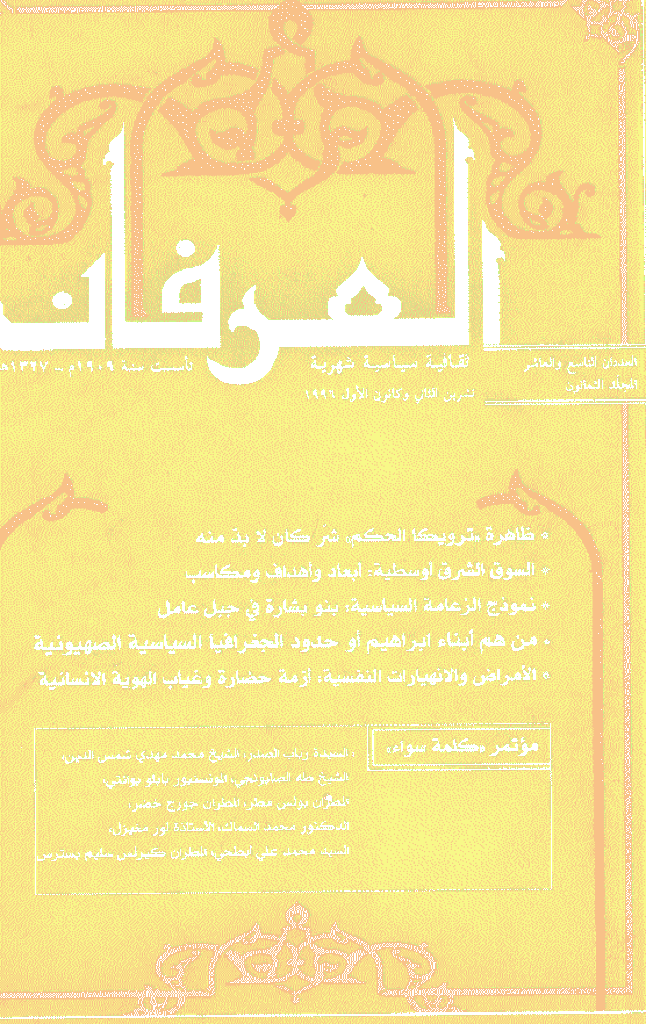 العرفان
العددان التاسع والعاشر
المجلد الثمانون
ثقافية سياسية شهرية
تأسست سنة ١٩٠٩م - ١٣٢٧هـ
تشرين الثاني وكانون الأول ١٩٩٦
* ظاهرة «ترويكا الحكم» شر كان لا بد منه
* السوق الشرق أوسطية: أبعاد وأهداف ومكاسب
* نموذج الزعامة السياسية: بنو بشارة في جبل عامل
* من هم أبناء ابراهيم أو حدود الجغرافيا السياسية الصهيونية
* الأمراض والانهيارات النفسية: أزمة حضارة وغياب الهوية الانسانية
مؤتمر «كلمة سواء»
السيدة رباب الصدر، الشيخ محمد مهدي شمس الدين،
الشيخ طه الصابونجي، المونسنيور بابلو بوانتي،
المطران بولس مطر، المطران جورج خضر،
الدكتور محمد السماك، الأستاذة نور مغيزل،
السيد محمد علي أبطحي، المطران كيرلس سليم بسترس